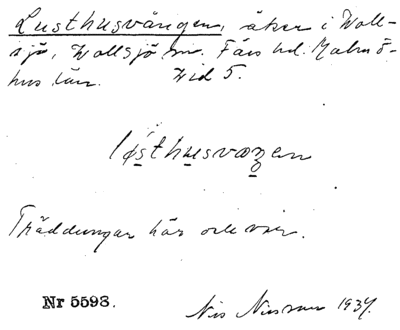 Lusthusvången, åker i Woll-
sjö, Wollsjö sn. Färs hd. Malmö-
hus län. Wid 5.
løsthusvaŋen
Träddungar här och var.
Nr 5593. Nis Nilsson 1937.